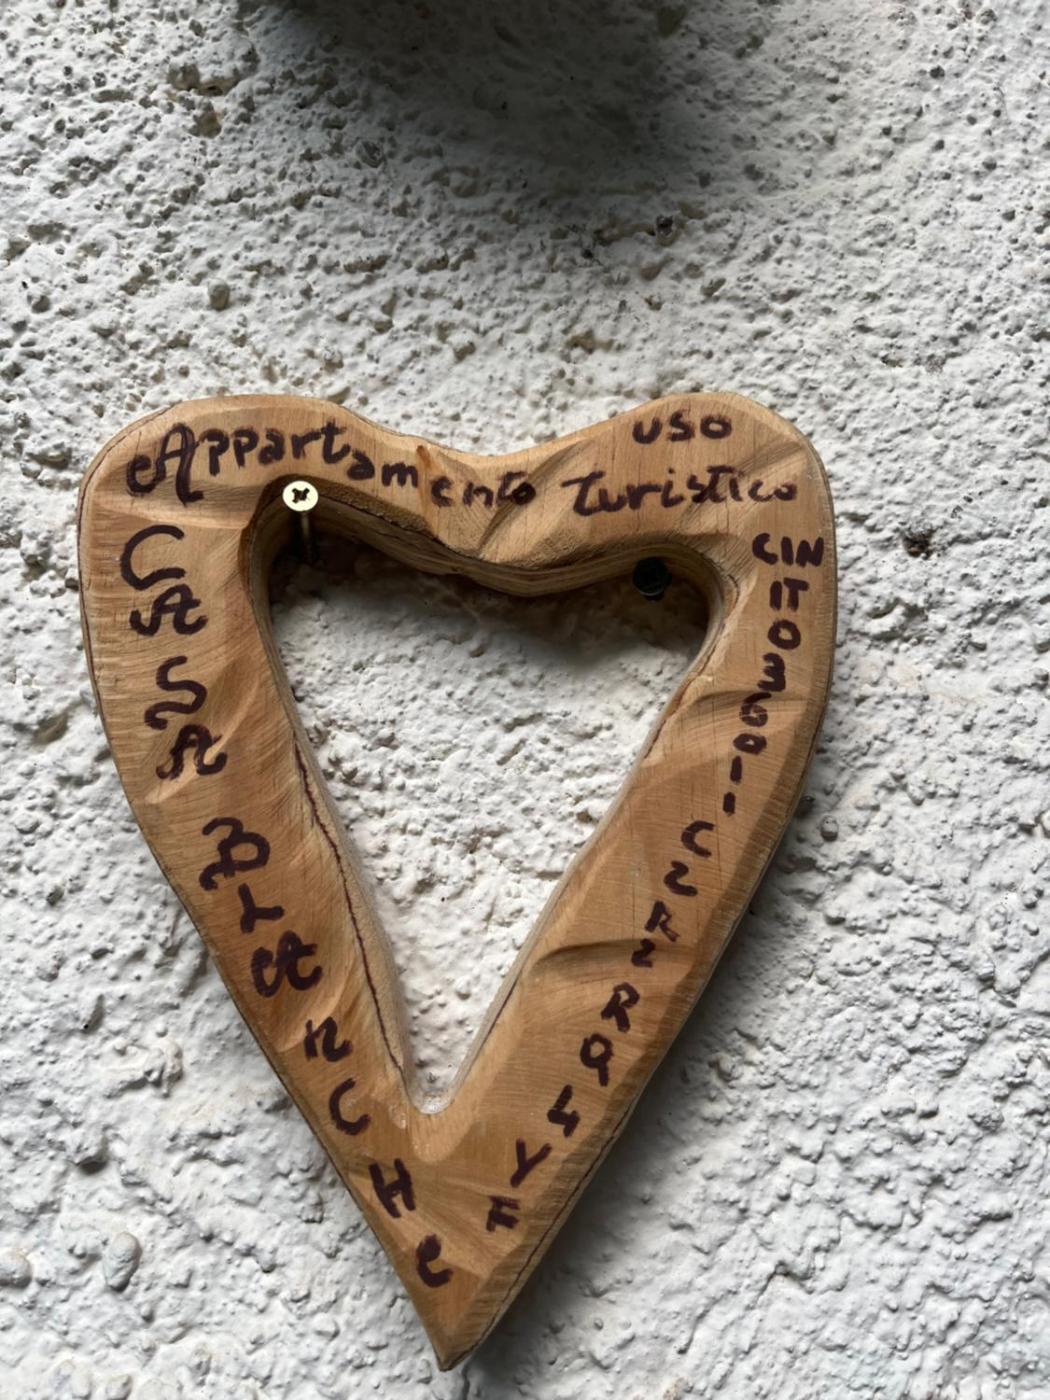 Appartamento uso turistico
CASA BLANCHE
CIN
IT036011C2R2RQ4YF